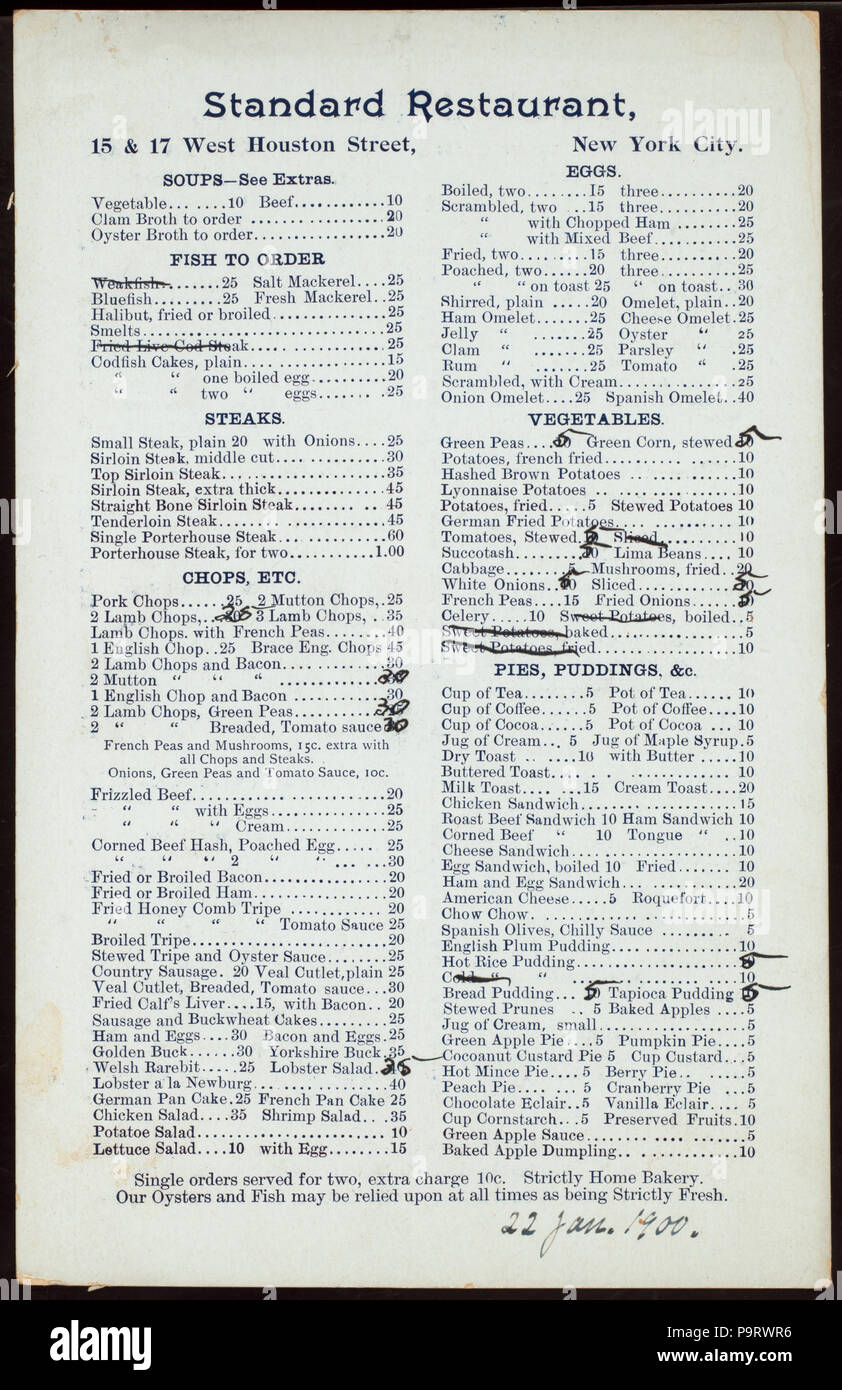 Standard Restaurant,
15 & 17 West Houston Street, New York City.
SOUPS—See Extras.
Vegetable........10 Beef............10
Clam Broth to order ................20
Oyster Broth to order................20
FISH TO ORDER
Weakfish........25 Salt Mackerel....25
Bluefish.........25 Fresh Mackerel..25
Halibut, fried or broiled.............25
Smelts.............................25
Fried Live Cod Steak................25
Codfish Cakes, plain.................15
" " one boiled egg.........20
" " two " eggs........25
STEAKS.
Small Steak, plain 20 with Onions....25
Sirloin Steak, middle cut.............30
Top Sirloin Steak....................35
Sirloin Steak, extra thick............45
Straight Bone Sirloin Steak..........45
Tenderloin Steak....................45
Single Porterhouse Steak.............60
Porterhouse Steak, for two..........1.00
CHOPS, ETC.
Pork Chops......25 2 Mutton Chops,.25
2 Lamb Chops,.. 25 3 Lamb Chops, ..35
Lamb Chops. with French Peas.......40
1 English Chop..25 Brace Eng. Chops 45
2 Lamb Chops and Bacon...........30
2 Mutton " " " ............30
1 English Chop and Bacon ..........30
2 Lamb Chops, Green Peas..........30
2 " " Breaded, Tomato sauce 30
French Peas and Mushrooms, 15c. extra with
all Chops and Steaks.
Onions, Green Peas and Tomato Sauce, 10c.
Frizzled Beef........................20
" " with Eggs..............25
" " " Cream............25
Corned Beef Hash, Poached Egg..... 25
" " " 2 " " ... ...30
Fried or Broiled Bacon...............20
Fried or Broiled Ham................20
Fried Honey Comb Tripe ............20
" " " " Tomato Sauce 25
Broiled Tripe........................20
Stewed Tripe and Oyster Sauce.......25
Country Sausage. 20 Veal Cutlet,plain 25
Veal Cutlet, Breaded, Tomato sauce...30
Fried Calf's Liver....15, with Bacon.. 20
Sausage and Buckwheat Cakes.........25
Ham and Eggs....30 Bacon and Eggs.25
Golden Buck......30 Yorkshire Buck.35
Welsh Rarebit.....25 Lobster Salad..35
Lobster a la Newburg.................40
German Pan Cake.25 French Pan Cake 25
Chicken Salad....35 Shrimp Salad...35
Potatoe Salad........................10
Lettuce Salad....10 with Egg........15
EGGS.
Boiled, two........15 three..........20
Scrambled, two ..15 three..........20
" with Chopped Ham ........25
" with Mixed Beef...........25
Fried, two.........15 three..........20
Poached, two......20 three..........25
" " on toast 25 " on toast..30
Shirred, plain .....20 Omelet, plain..20
Ham Omelet.......25 Cheese Omelet.25
Jelly " .......25 Oyster " 25
Clam " .......25 Parsley " .25
Rum " .......25 Tomato " .25
Scrambled, with Cream...............25
Onion Omelet....25 Spanish Omelet..40
VEGETABLES.
Green Peas....5 Green Corn, stewed 5
Potatoes, french fried................10
Hashed Brown Potatoes .............10
Lyonnaise Potatoes ..................10
Potatoes, fried.....5 Stewed Potatoes 10
German Fried Potatoes...............10
Tomatoes, Stewed. 5 Sliced......10
Succotash........5 Lima Beans.... 10
Cabbage........5 Mushrooms, fried..20
White Onions..5 Sliced............5
French Peas....15 Fried Onions.....5
Celery.....10 Sweet Potatoes, boiled..5
Sweet Potatoes, baked................5
Sweet Potatoes, fried................10
PIES, PUDDINGS, &c.
Cup of Tea........5 Pot of Tea...... 10
Cup of Coffee......5 Pot of Coffee....10
Cup of Cocoa......5 Pot of Cocoa ... 10
Jug of Cream... 5 Jug of Maple Syrup.5
Dry Toast .......10 with Butter .....10
Buttered Toast.......................10
Milk Toast.........15 Cream Toast....20
Chicken Sandwich....................15
Roast Beef Sandwich 10 Ham Sandwich 10
Corned Beef " 10 Tongue " ..10
Cheese Sandwich.....................10
Egg Sandwich, boiled 10 Fried.......10
Ham and Egg Sandwich..............20
American Cheese.....5 Roquefort....10
Chow Chow..........................5
Spanish Olives, Chilly Sauce ........ 5
English Plum Pudding...............10
Hot Rice Pudding....................5
Cold " " ......................10
Bread Pudding... 5 Tapioca Pudding 5
Stewed Prunes .. 5 Baked Apples ....5
Jug of Cream, small..................5
Green Apple Pie ...5 Pumpkin Pie....5
Cocoanut Custard Pie 5 Cup Custard...5
Hot Mince Pie.... 5 Berry Pie.. .....5
Peach Pie........ 5 Cranberry Pie ...5
Chocolate Eclair..5 Vanilla Eclair.... 5
Cup Cornstarch...5 Preserved Fruits.10
Green Apple Sauce...................5
Baked Apple Dumpling..............10
Single orders served for two, extra charge 10c. Strictly Home Bakery.
Our Oysters and Fish may be relied upon at all times as being Strictly Fresh.
22 Jan. 1900.
alamy
Image ID: P9RWR6
www.alamy.com